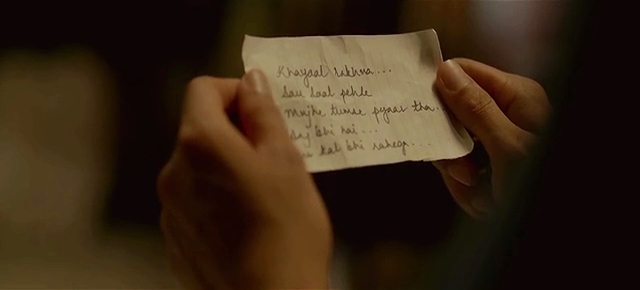 Khayaal rakhna...
Sau saal pehle
Mujhe tumse pyaar tha..
aaj bhi hai...
kal bhi rahega...